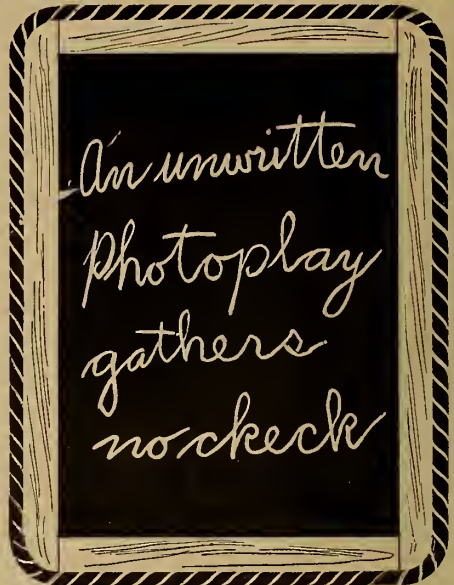 An unwritten
Photoplay
gathers
no ckeck